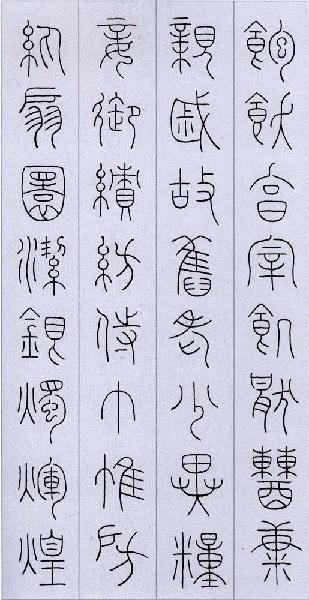 飽飫烹宰飢厭糟糠
親戚故舊老少異糧
妾御績紡侍巾帷房
紈扇圓潔銀燭煒煌